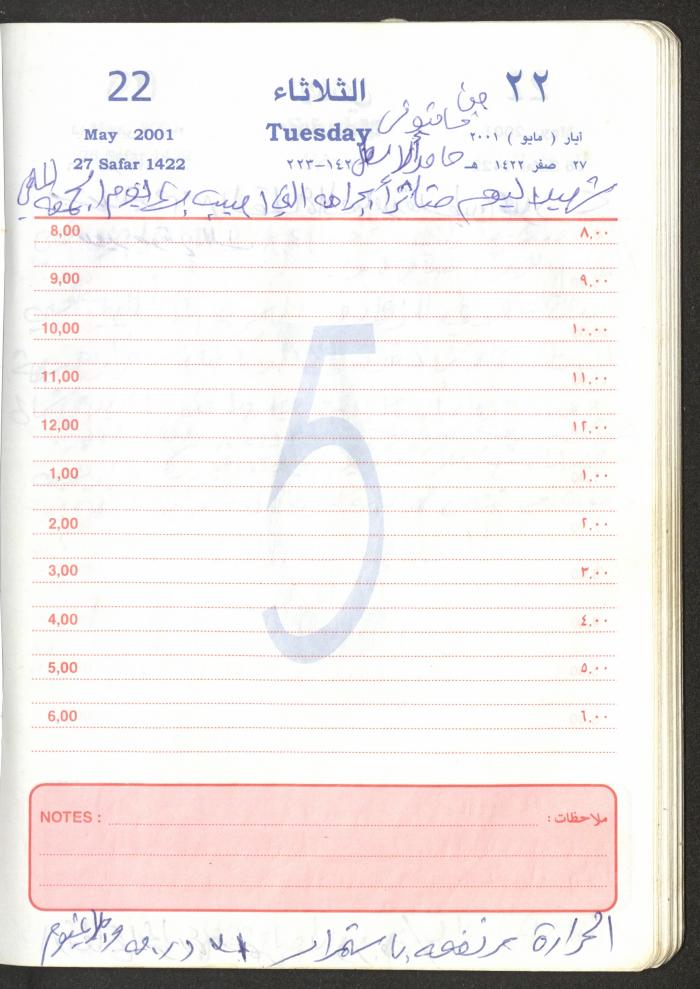 22 الثلاثاء ٢٢
May 2001 Tuesday أيار ( مايو ) ٢٠٠١
27 Safar 1422 ١٤٢-٢٢٣ ٢٧ صفر ١٤٢٢ هـ
من
شهيد اليوم متأثراً بجراحه التي اصيب بها يوم الجمعه
8,00 ٨,٠٠
9,00 ٩,٠٠
10,00 ١٠,٠٠
11,00 ١١,٠٠
12,00 ١٢,٠٠
1,00 ١,٠٠
2,00 ٢,٠٠
3,00 ٣,٠٠
4,00 ٤,٠٠
5,00 ٥,٠٠
6,00 ٦,٠٠
5
NOTES : ملاحظات :
الحرارة مرتفعه باستمرار درجه